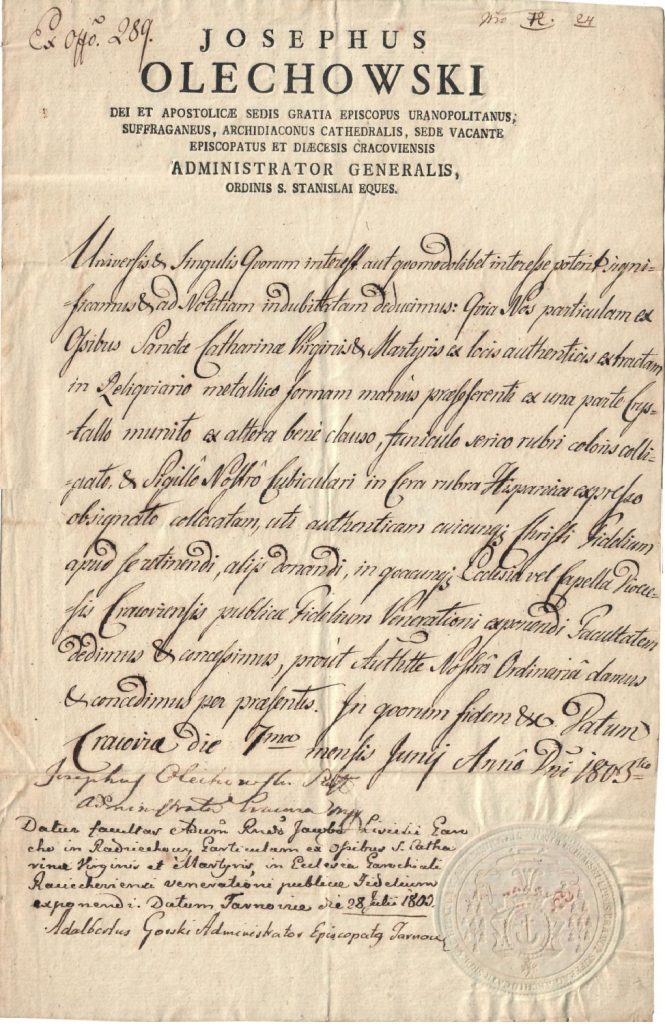 Ex Offo. 289.
Nro 12. 24
JOSEPHUS
OLECHOWSKI
DEI ET APOSTOLICÆ SEDIS GRATIA EPISCOPUS URANOPOLITANUS,
SUFFRAGANEUS, ARCHIDIACONUS CATHEDRALIS, SEDE VACANTE
EPISCOPATUS ET DIÆCESIS CRACOVIENSIS
ADMINISTRATOR GENERALIS,
ORDINIS S. STANISLAI EQUES.
Universis & Singulis Quorum interest aut quomodolibet interesse poterit signi-
-ficamus & ad Notitiam indubitatam deducimus: Quia Nos particulam ex
Ossibus Sanctæ Catharinæ Virginis & Martyris ex locis authenticis extractam
in Reliqviario metallico formam manus præseferenti ex una parte Crys-
-tallo munito ex altera bene clauso, funiculo serico rubri coloris colli-
-gato, & Sigillô Nostrô Cubiculari in Cera rubra Hispanica expresso
obsignato collocatam, uti authenticam cuicunq; Christi Fidelium
apud se retinendi, alijs donandi, in quacunq; Ecclesia vel Capella Dioce-
-sis Cracoviensis publicæ Fidelium Venerationi exponendi Facultatem
dedimus & concessimus, prout Authtte Nostrâ Ordinariâ damus
& concedimus per præsentes. In quorum fidem & Datum
Cracoviæ die 7ma mensis Junij Annô Dni 1803tio
Josephus Olechowski
Administrator
Datur facultas Adum Rndo Jacobo Paro-
cho in Particulam ex Ossibus S. Catha
rinæ Virginis et Martyris, in Ecclesia Parochiali
venerationi publicæ Fidelium
exponendi. Datum Tarnoviæ die 28 Julii 1803
Adalbertus Gorski Administrator Episcopatq Tarnov